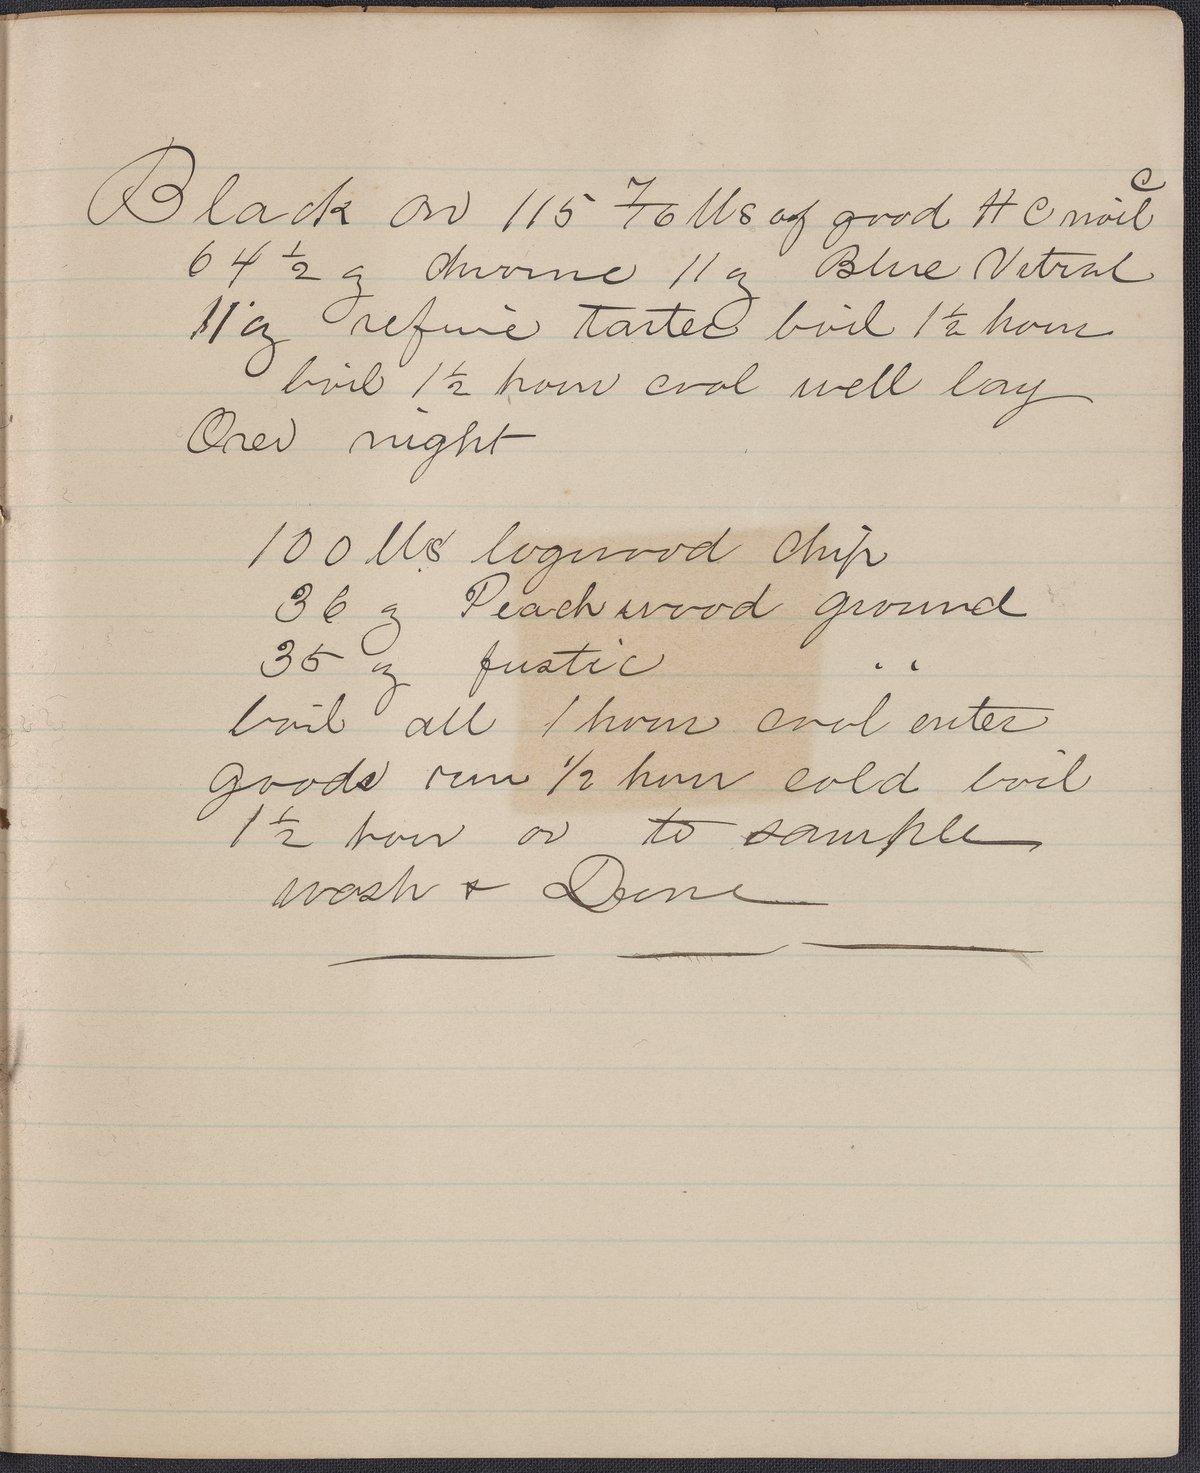 Black on 115 7/0 lbs of good H C noil
64 ½ g chrome 11 g Blue Vitral
11 g refine tarter boil 1½ hour
boil 1½ hour cool well lay
Over night
100 lbs logwood chip
36 g Peachwood ground
35 g fustic "
boil all 1 hour cool enter
goods run ½ hour cold boil
1½ hour or to sample
wash & Done